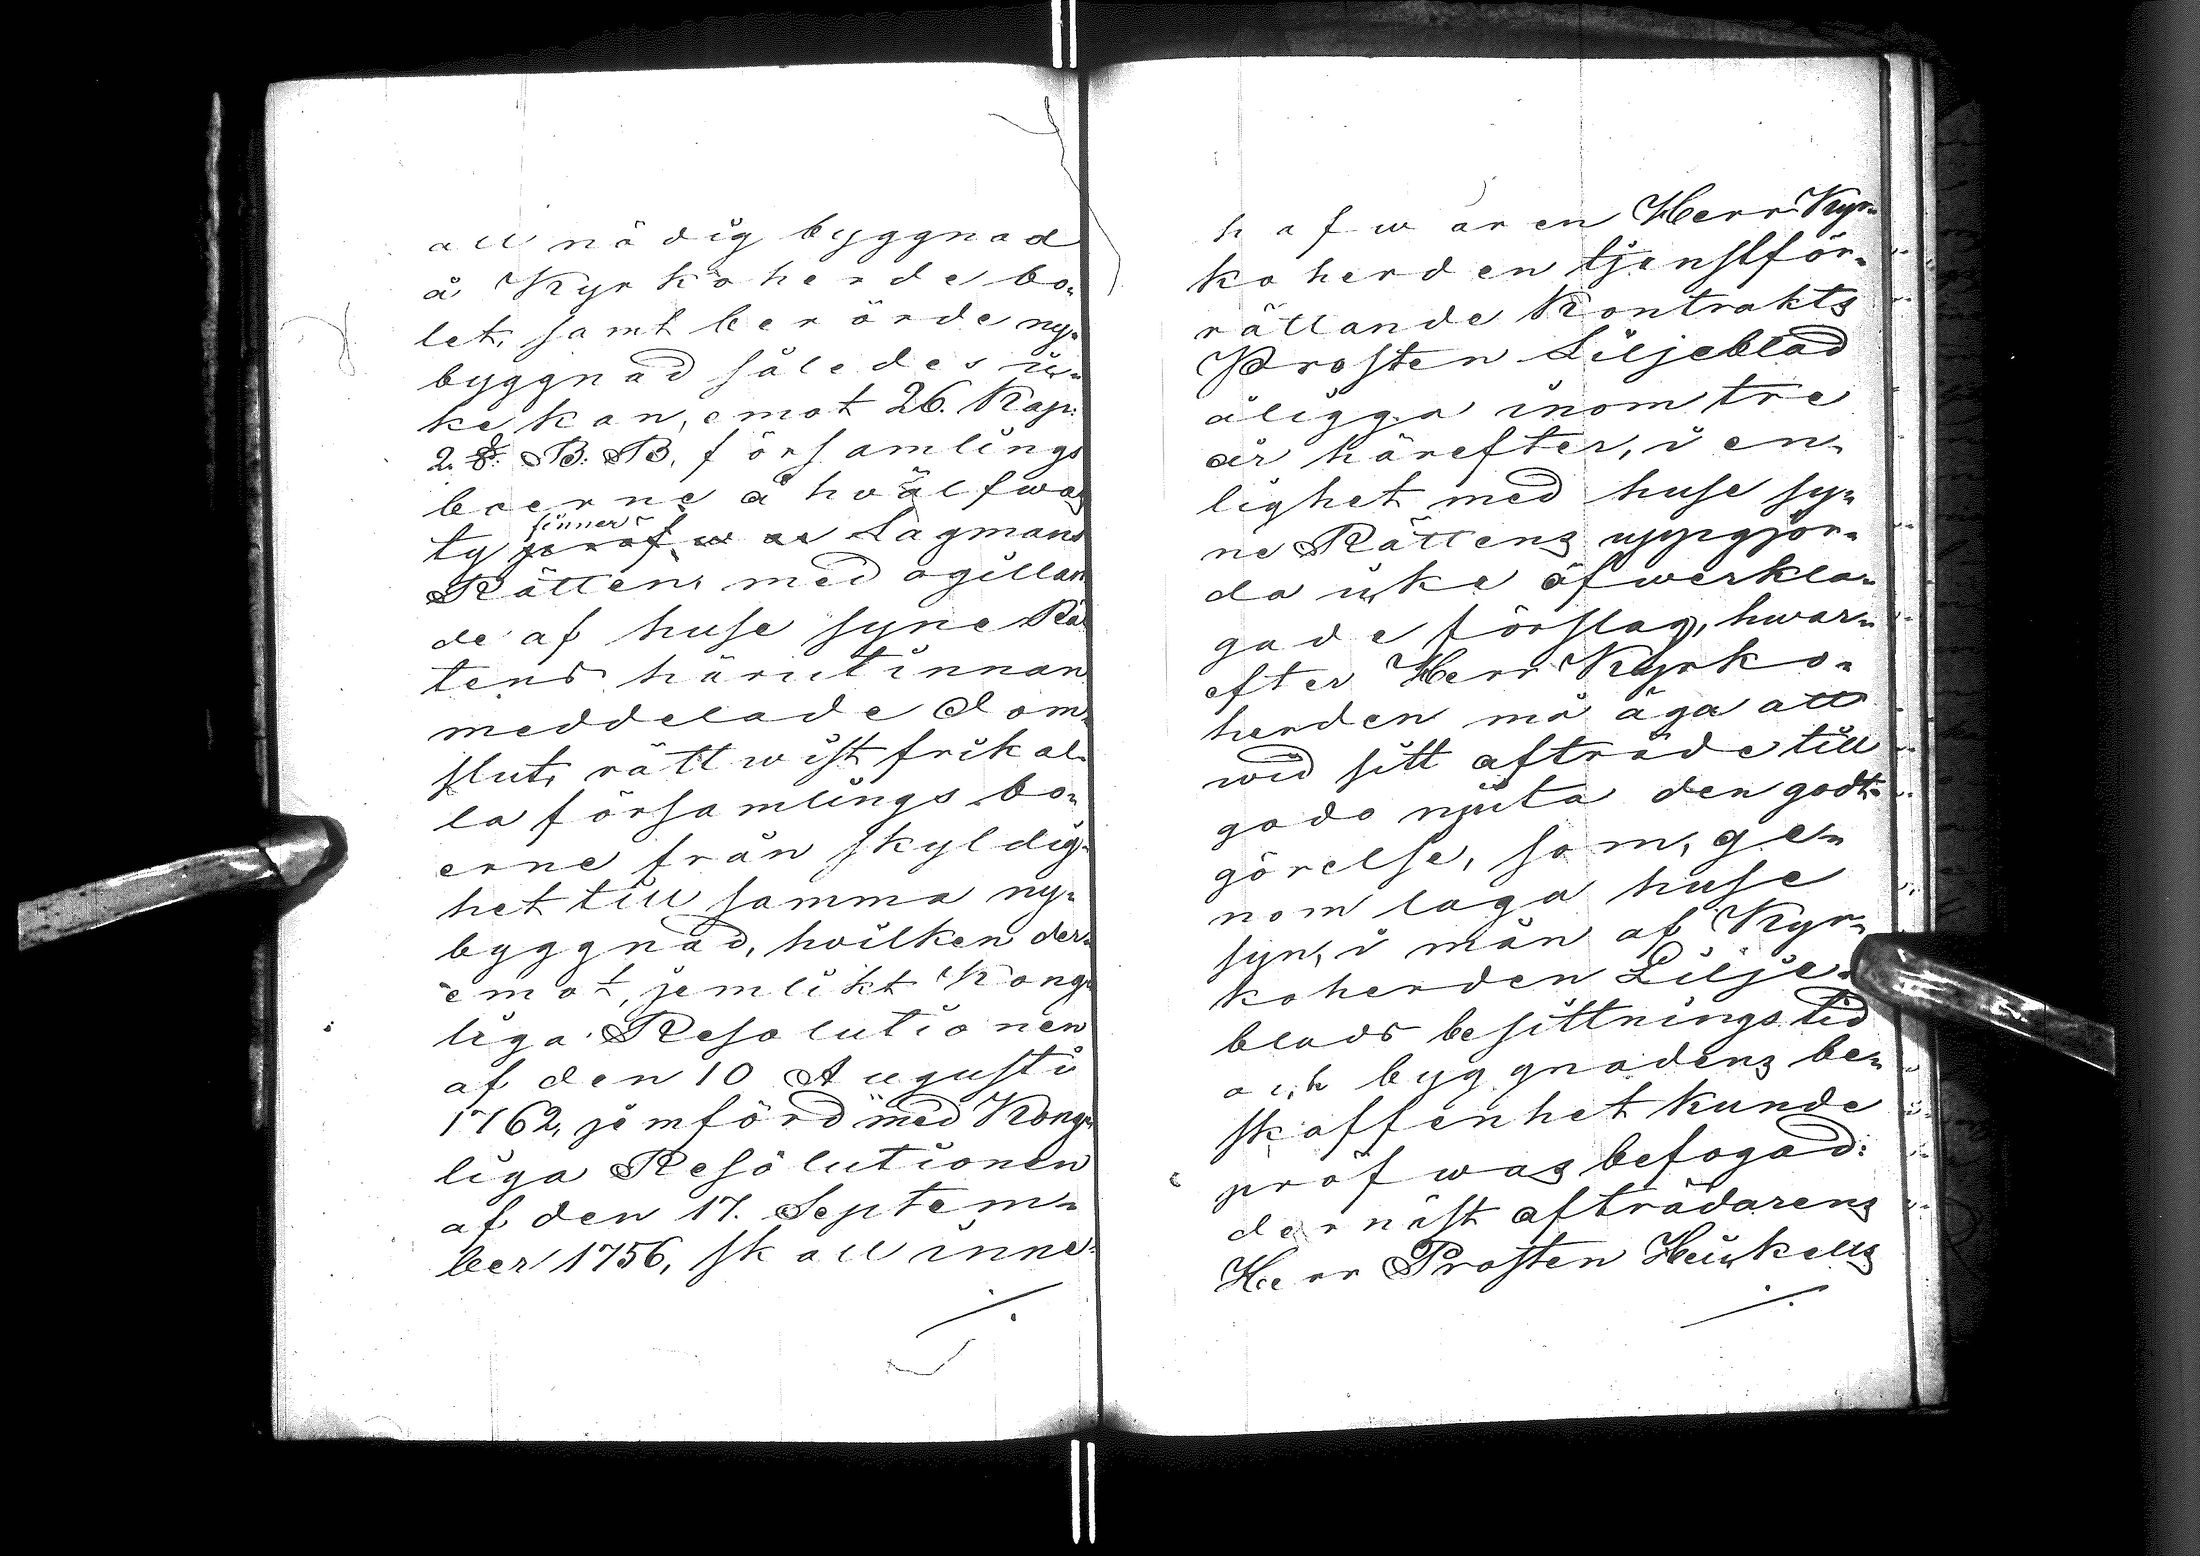 all nödig byggnad
å Kyrkoherde bo-
let, samt berörde ny-
byggnad således ic-
ke kan, emot 26. Kap:
2. §. B. B. församlings
boerne å hvälfwas
ty finner Lagmans
Rätten, med ogillan
de af huse syne Rä
tens härutinnan
meddelade dom-
slut, rättwist frikal-
la församlings bo-
erne från skyldig-
het till samma ny-
byggnad, hvilken der-
emot, jemlikt Kong-
liga Resolutionen
af den 10 Augusti
1762, jemförd med Kong-
liga Resolutionen
af den 17. Septem-
ber 1756, skall inne-
./.
hafwaren Herr Kyr-
koherden tjenstför-
rättande Kontrakts
Prosten Liljeblad
åligga inom tre
år härefter, i en-
lighet med huse sy-
ne Rättens uppgjor-
da icke öfwerkla-
gade förslag, hwar-
efter Herr Kyrko-
herden må äga att
wid sitt afträde till
godo njuta den godt-
görelse, som, ge-
nom laga huse
syn, i mån af Kyr-
koherden Lilje-
blads besittningstid
och byggnadens be-
skaffenhet kunde
pröfwas befogad:
dernäst afträdarens
Herr Prosten Heickells
./.